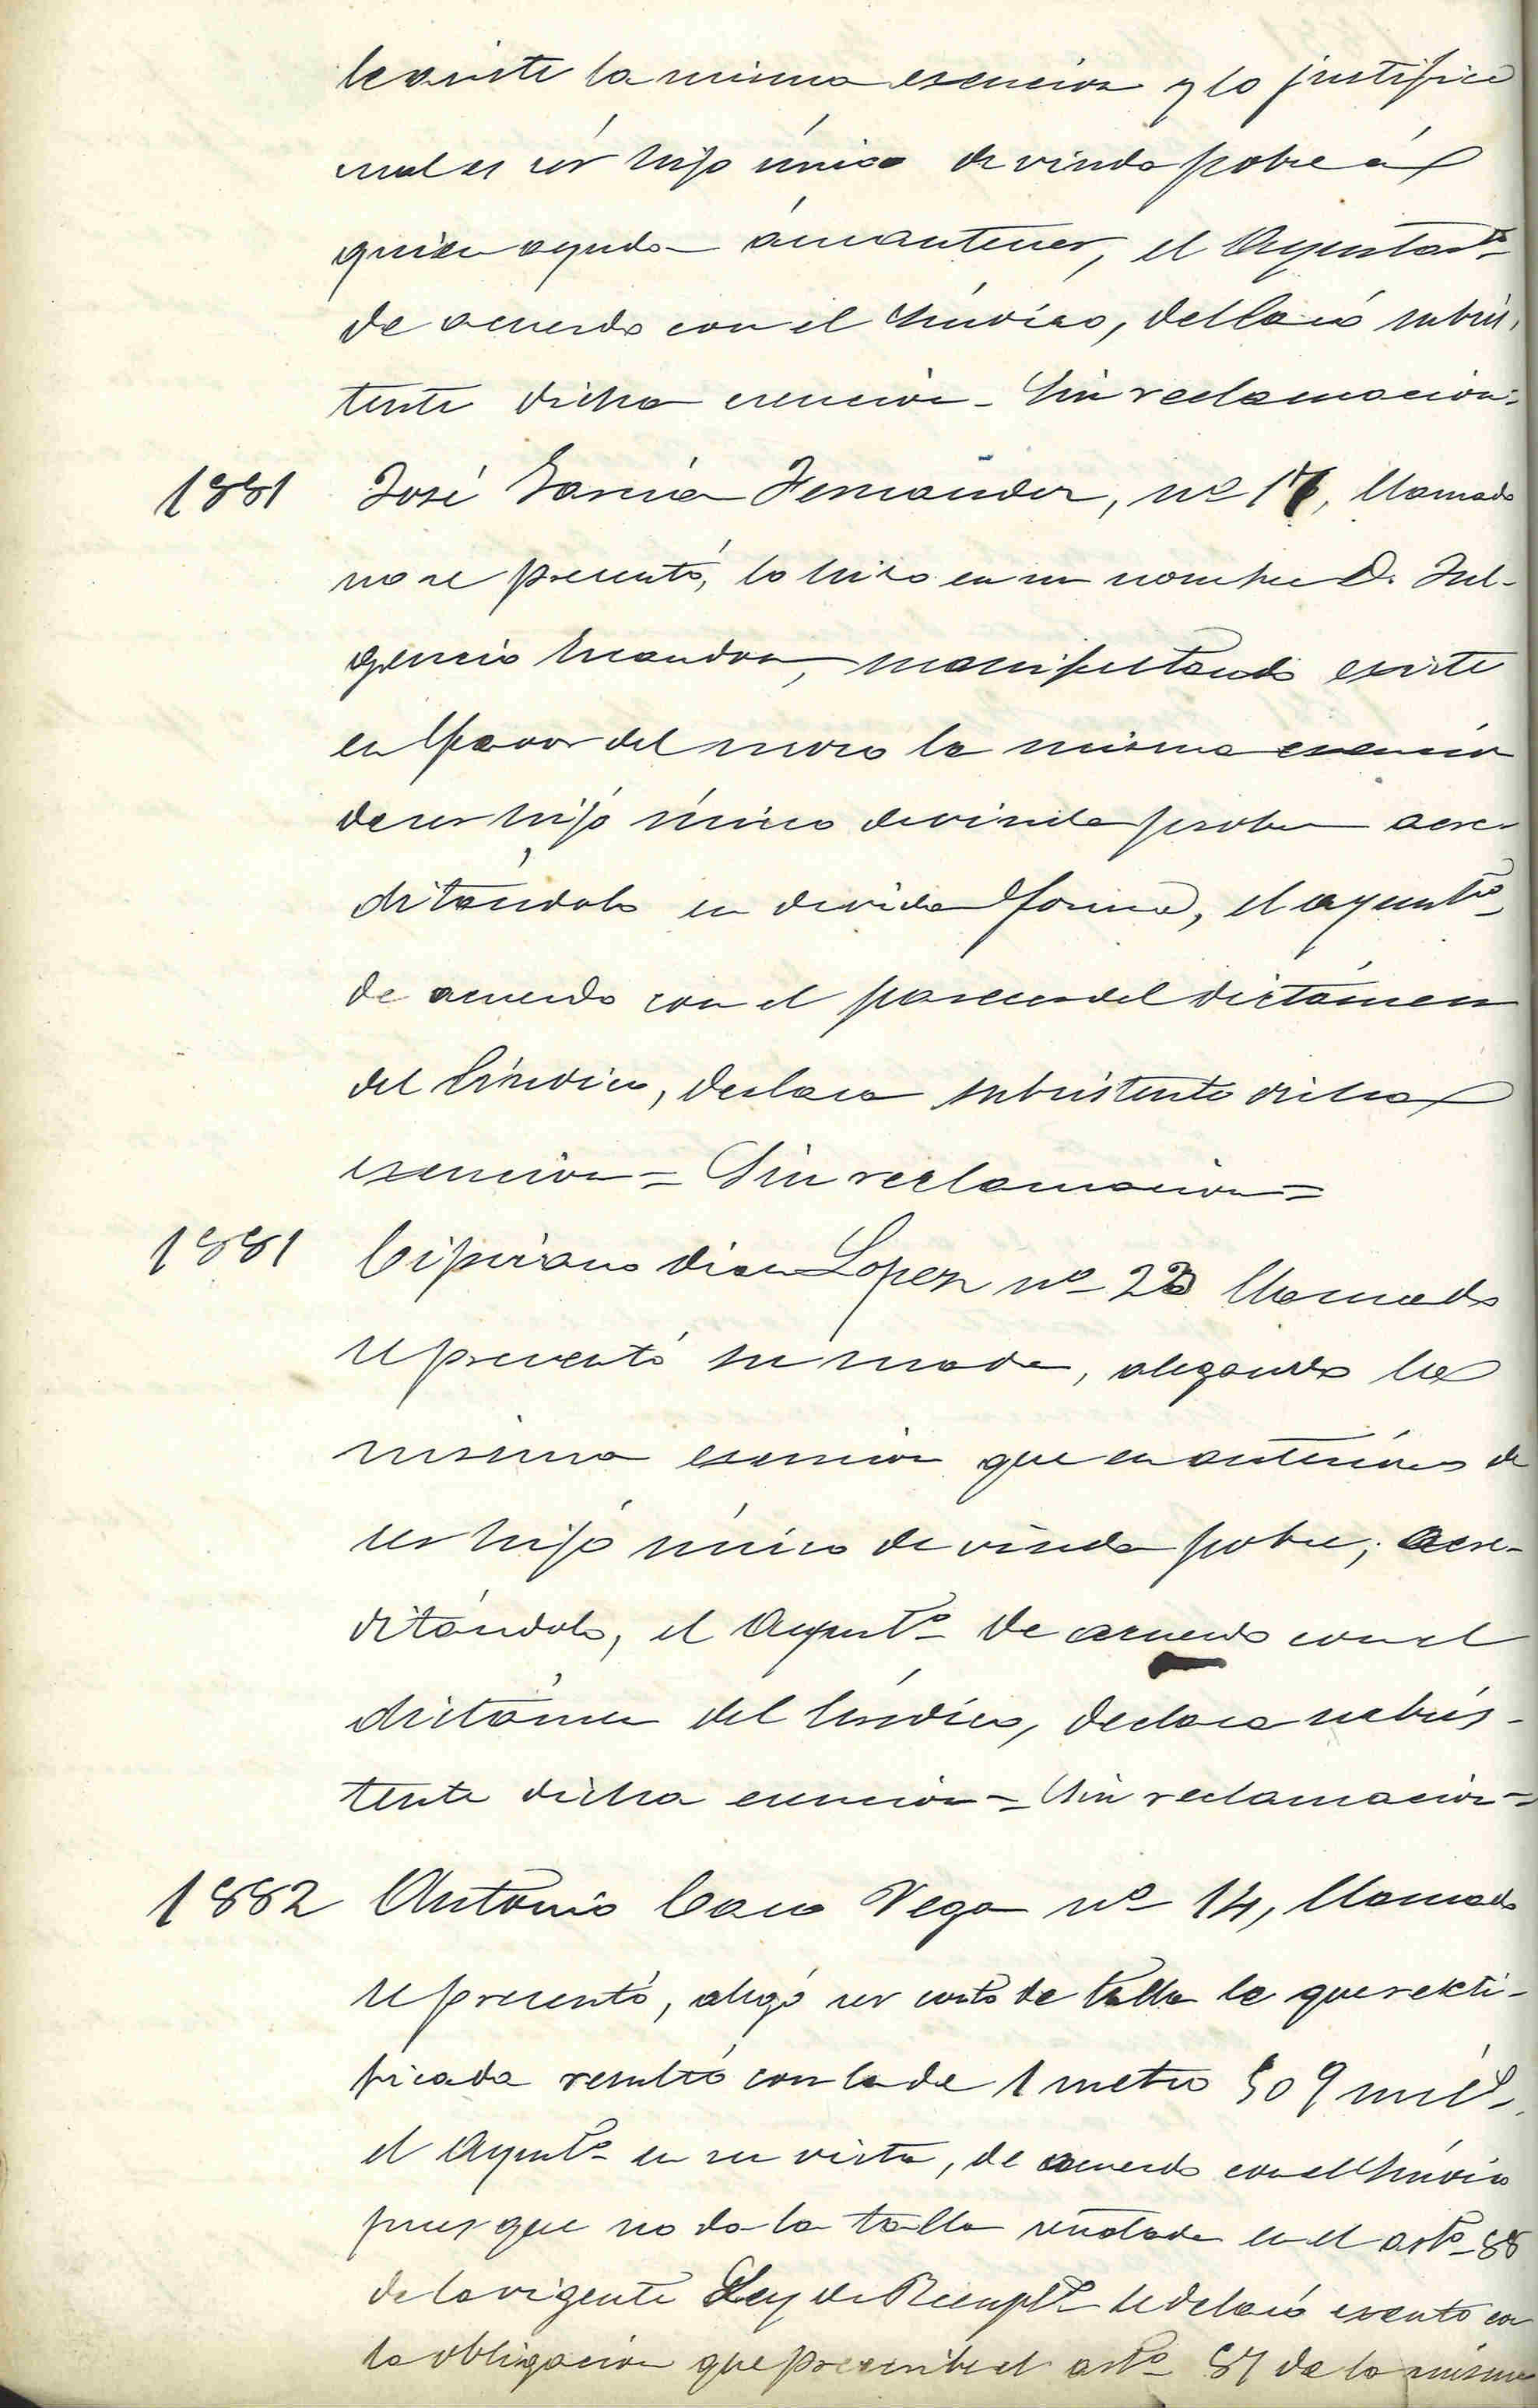 le asiste la misma esencion y lo justifica
cual es sér hijo único de viuda pobre á
quien ayuda á mantener, el Ayuntamto
de acuerdo con el Síndico, declaró subsis-
tente dicha esencion - Sin reclamacion=
1881 José Garcia Fernandez, nº 17, llamado
no se presentó, lo hizo en su nombre D. Ful-
gencio manifestando existe
en favor del mozo la misma esencion
de ser hijo único de viuda pobre acre-
ditándolo en devida forma, el ayuntº
de acuerdo con el parecer del dictámen
del Síndico, declara subsistente dicha
esencion= Sin reclamacion=
1881 Cipriano Diaz Lopez nº 23 llamado
se presentó su madre, alegando la
misma esencion que en anteriores de
ser hijo único de viuda pobre; acre-
ditándolo, el Ayuntº de acuerdo con el
dictámen del Síndico, declara subsis-
tente dicha esencion= Sin reclamacion=
1882 Antonio Cano Vega nº 14, llamado
se presentó, alegó ser corto de talla la que rekti-
ficada resultó con la de 1 metro 509 milº
el Ayuntº en su vista, de acuerdo con el Síndico
pues que no da la talla señalada en el artº 88
de la vigente Ley de Reemplº le declaró esento con
la obligacion que prescribe el artº 87 de la misma